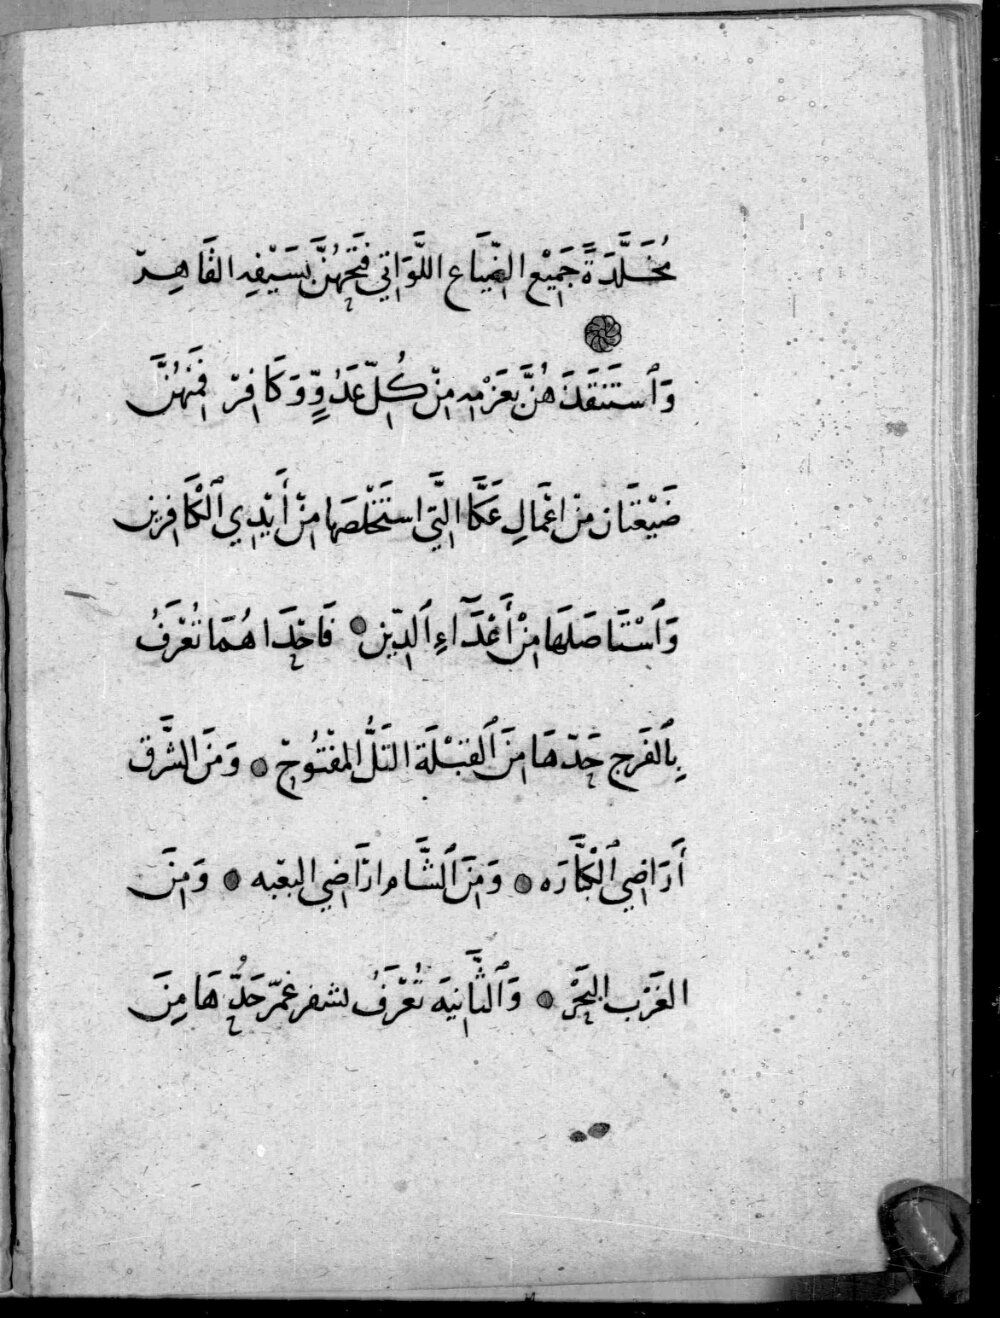 مُخَلَّدَةً جَمِيْع الضِّيَاع اللَّوَاتِي فَتَحَهُنَّ بِسَيْفِهِ القَاهِر
وَاَسْتَنْقَذَهُنَّ بِعَزْمِهِ مِنْ كُلِّ عَدُوٍّ وَكَافِر فَمِنْهُنَّ
ضَيْعَتَان مِنْ اعْمَالِ عَكَّا الَّتِي اسْتَخْلَصَهَا مِنْ أَيْدِي الْكَافِرِين
وَاَسْتَاصَلَهَا مِنْ أَعْدَآءِ اَلدِّيْن فَاحْدَاهُمَا تُعْرَفُ
بِاَلفَرَج حَدّهَا مِنَ اَلقِبْلَة التَلُّ المَفْتُوحْ وَمَن الشَّرْق
أَرَاضِي الْكَّارَه وَمِنَ اَلشَّام ارَاضِي البعْبه وَمِنَ
الغَرْب البَحْرْ وَاَلثَّانِيَه تُعْرَفُ بشفرعمّر حَدُّهَا مِنَ